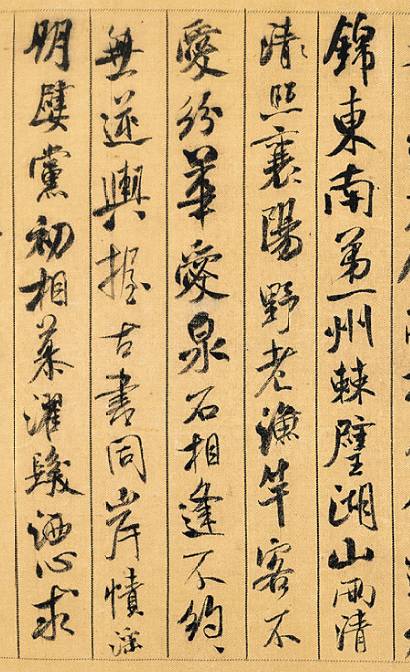 錦東南第一州棘璧湖山兩清
清照襄陽野老漁竿客不
愛紛華愛泉石相逢不約、
無逆輿握古書同岸幘淫
朋嬖黨初相慕濯髮洒心求